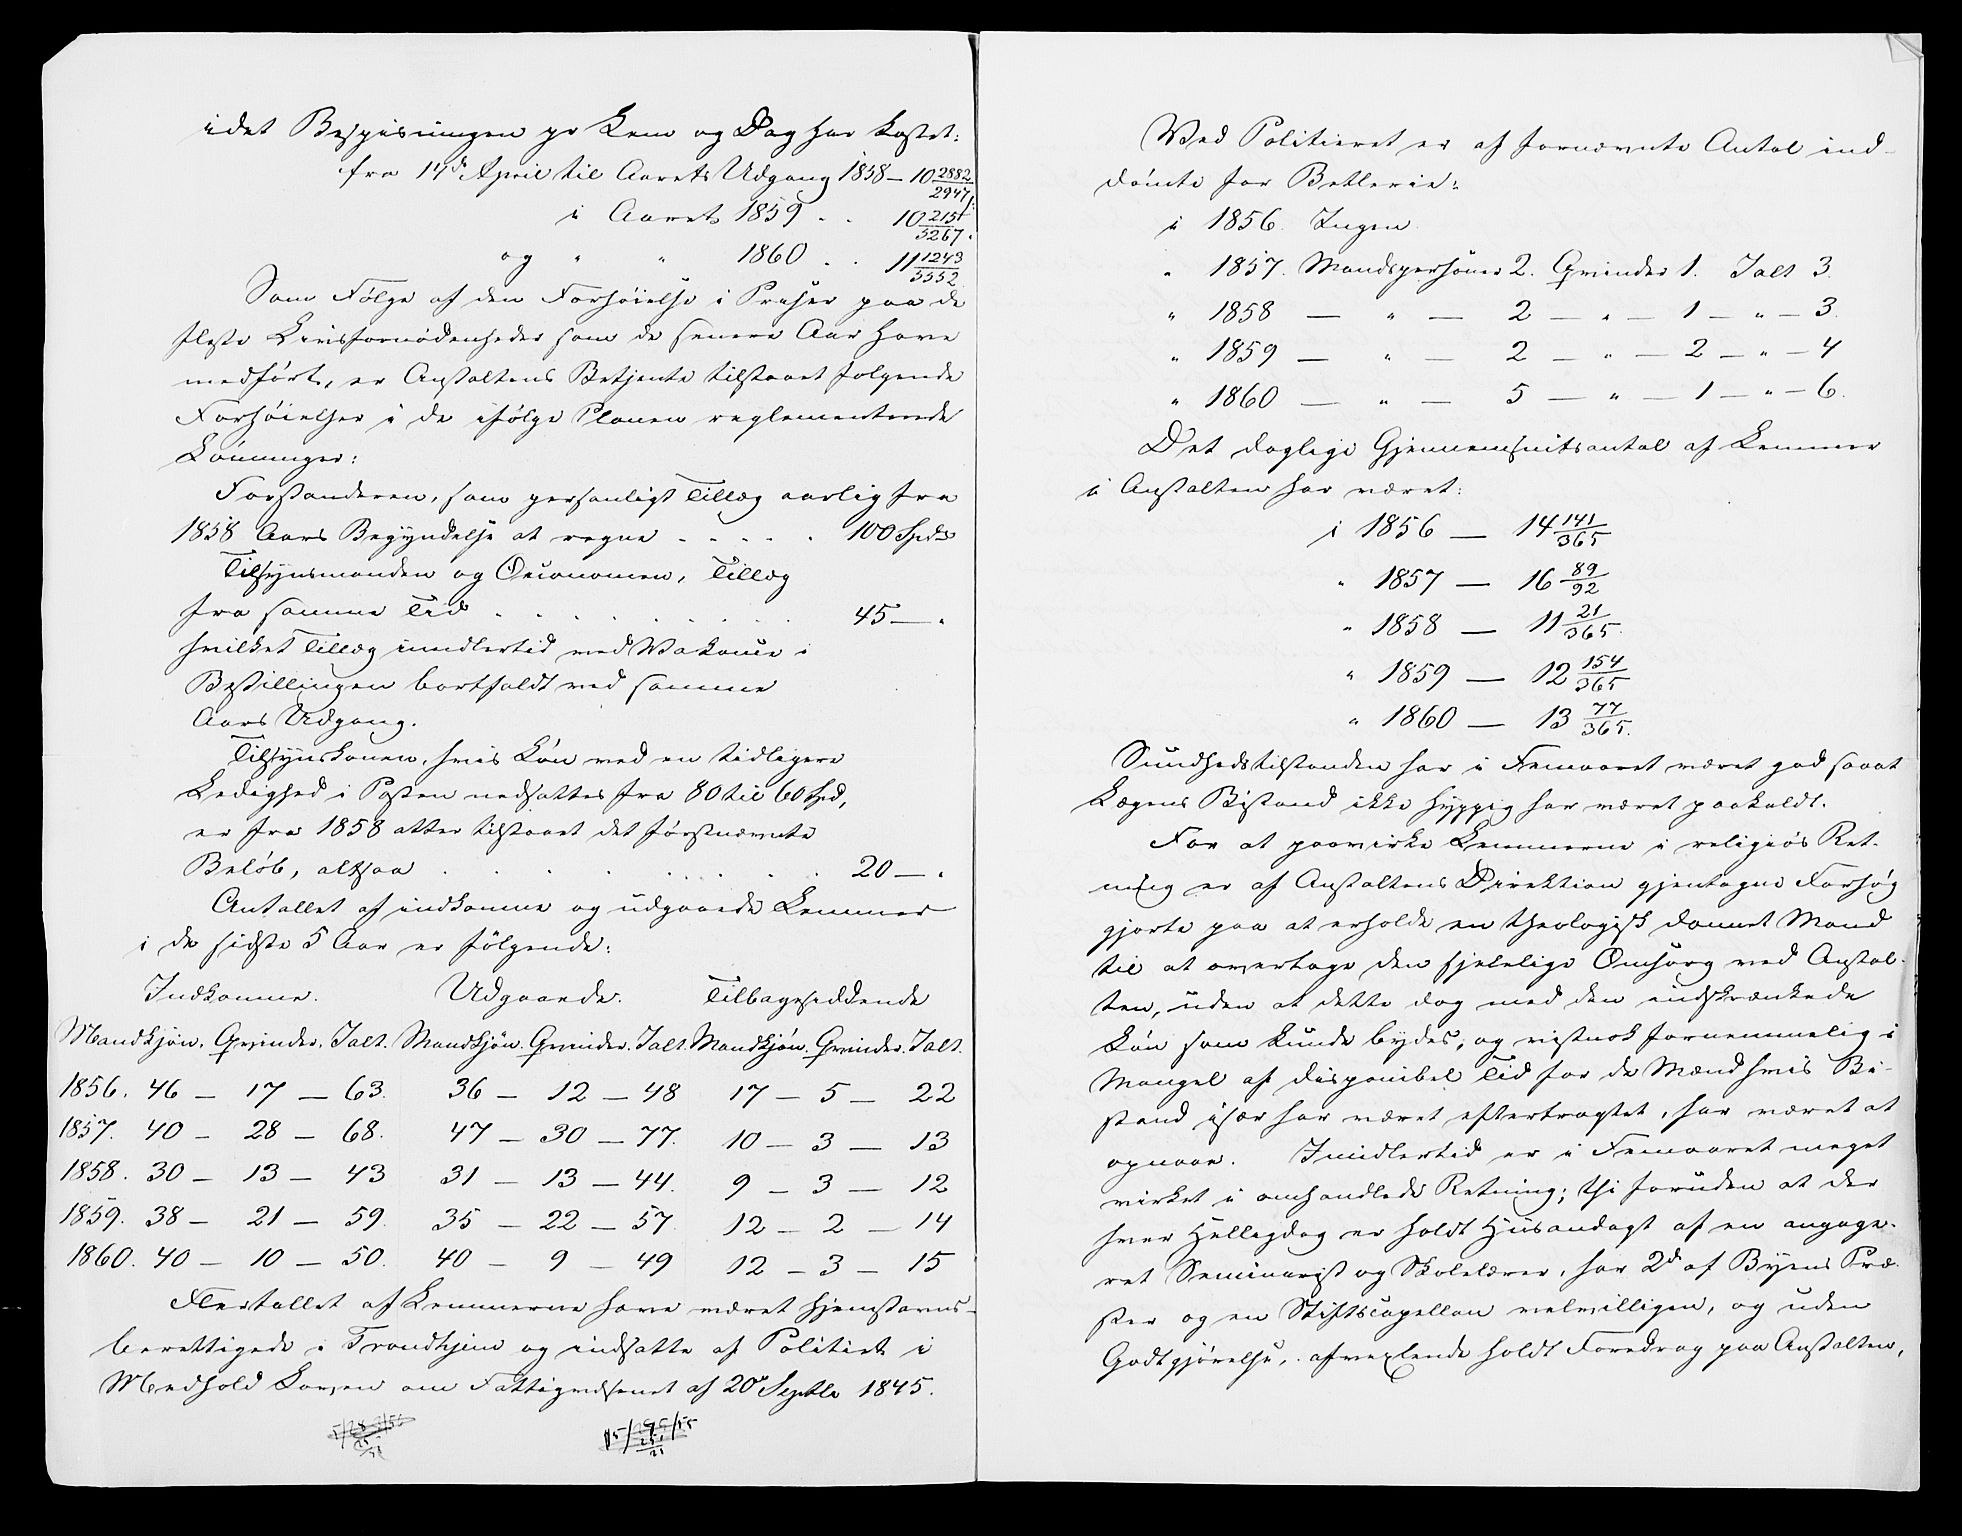 idet Bespisningen pr Lem og Dag har kostet:
fra 14de April til Aarets Udgang 1858 — 10 2882/2947
i Aaret 1859 . . 10 2151/5267.
og " " 1860 . . 11 1243/5552
Som Følge af den Forhøielse i Priser paa de
fleste Livsfornødenheder som de senere Aar have
medført, er Anstaltens Betjente tilstaaet følgende
Forhøielser i de ifølge Planen reglementerede
Lønninger:
Forstanderen, som personligt Tillæg aarlig fra
1858 Aars Begyndelse at regne . . . . . 100 Spd
Tilsynsmanden og Oeconomen, Tillæg
fra samme Tid . . . . . . . . 45 — "
hvilket Tillæg imidlertid ved Vakance i
Bestillingen bortfaldt ved samme
Aars Udgang.
Tilsynskonen, hvis Løn ved en tidligere
Ledighed i Posten nedsattes fra 80 til 60 Spd,
er fra 1858 atter tilstaaet det førstnævnte
Beløb, altsaa . . . . . . . . 20 — "
Antallet af indkomne og udgaaede Lemmer
i de sidste 5 Aar er følgende:
Indkomne. Udgaaede. Tilbagesiddende
Mandkjøn. Qvinder. Ialt. Mandkjøn. Qvinder. Ialt. Mandkjøn. Qvinder. Ialt.
1856. 46 — 17 — 63. 36 — 12 — 48 17 — 5 — 22
1857. 40 — 28 — 68. 47 — 30 — 77. 10 — 3 — 13
1858. 30 — 13 — 43 31 — 13 — 44. 9 — 3 — 12
1859. 38 — 21 — 59. 35 — 22 — 57. 12 — 2 — 14
1860. 40 — 10 — 50. 40 — 9 — 49 12 — 3 — 15
Flertallet af Lemmerne have været hjemstavns-
berettigede i Trondhjem og indsatte af Politiet i
Medhold Loven om Fattigvæsenet af 20de Septbr 1845.
Ved Politieret er af fornævnte Antal ind-
dømte for Betlerie:
i 1856. Ingen.
" 1857. Mandspersoner 2. Qvinder 1. Ialt 3.
" 1858 — " — 2 — " — 1 — " — 3.
" 1859 — " — 2 — " — 2 — " — 4
" 1860 — " — 5 — " — 1 — " — 6.
Det daglige Gjennemsnitsantal af Lemmer
i Anstalten har været:
i 1856 — 14 141/365
" 1857 — 16 89/92
" 1858 — 11 21/365.
" 1859 — 12 154/365
" 1860 — 13 77/365.
Sundhedstilstanden har i Femaaret været god saaat
Lægens Bistand ikke hyppig har været paakaldt.
For at paavirke Lemmerne i religiøs Ret-
ning er af Anstaltens Direktion gjentagne Forsøg
gjorte paa at erholde en theologisk dannet Mand
til at overtage den sjelelige Omsorg ved Anstal-
ten, uden at dette dog med den indskrænkede
Løn som kunde bydes, og vistnok fornemmelig i
Mangel af disponibel Tid for de Mænd hvis Bi-
stand især har været eftertragtet, har været at
opnaae. Imidlertid er i Femaaret meget
virket i omhandlede Retning; thi foruden at der
hver Helligdag er holdt Husandagt af en engage-
ret Seminarist og Skolelærer, har 2de af Byens Præ-
ster og en Stiftscapellan velvilligen, og uden
Godtgjørelse, afvexlende holdt Foredrag paa Anstalten,